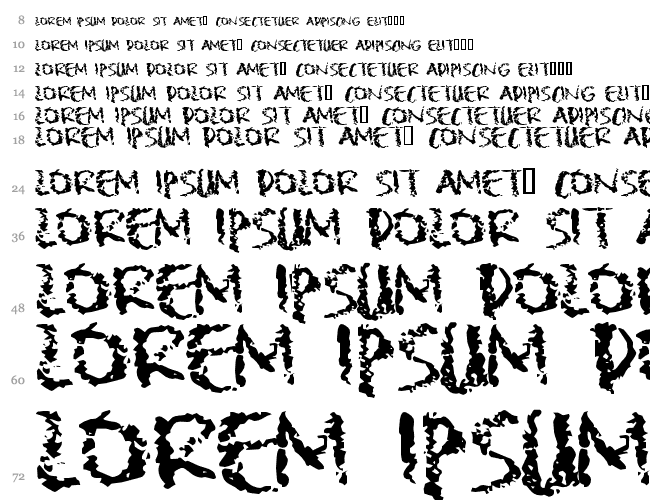 8 LOREM IPSUM DOLOR SIT AMET▯ CONSECTETUER ADIPISCING ELIT▯▯▯
10 LOREM IPSUM DOLOR SIT AMET▯ CONSECTETUER ADIPISCING ELIT▯▯▯
12 LOREM IPSUM DOLOR SIT AMET▯ CONSECTETUER ADIPISCING ELIT▯▯▯
14 LOREM IPSUM DOLOR SIT AMET▯ CONSECTETUER ADIPISCING ELIT▯
16 LOREM IPSUM DOLOR SIT AMET▯ CONSECTETUER ADIPISCING
18 LOREM IPSUM DOLOR SIT AMET▯ CONSECTETUER AD
24 LOREM IPSUM DOLOR SIT AMET▯ CONSE
36 LOREM IPSUM DOLOR SIT A
48 LOREM IPSUM DOLO
60 LOREM IPSUM DO
72 LOREM IPSUM